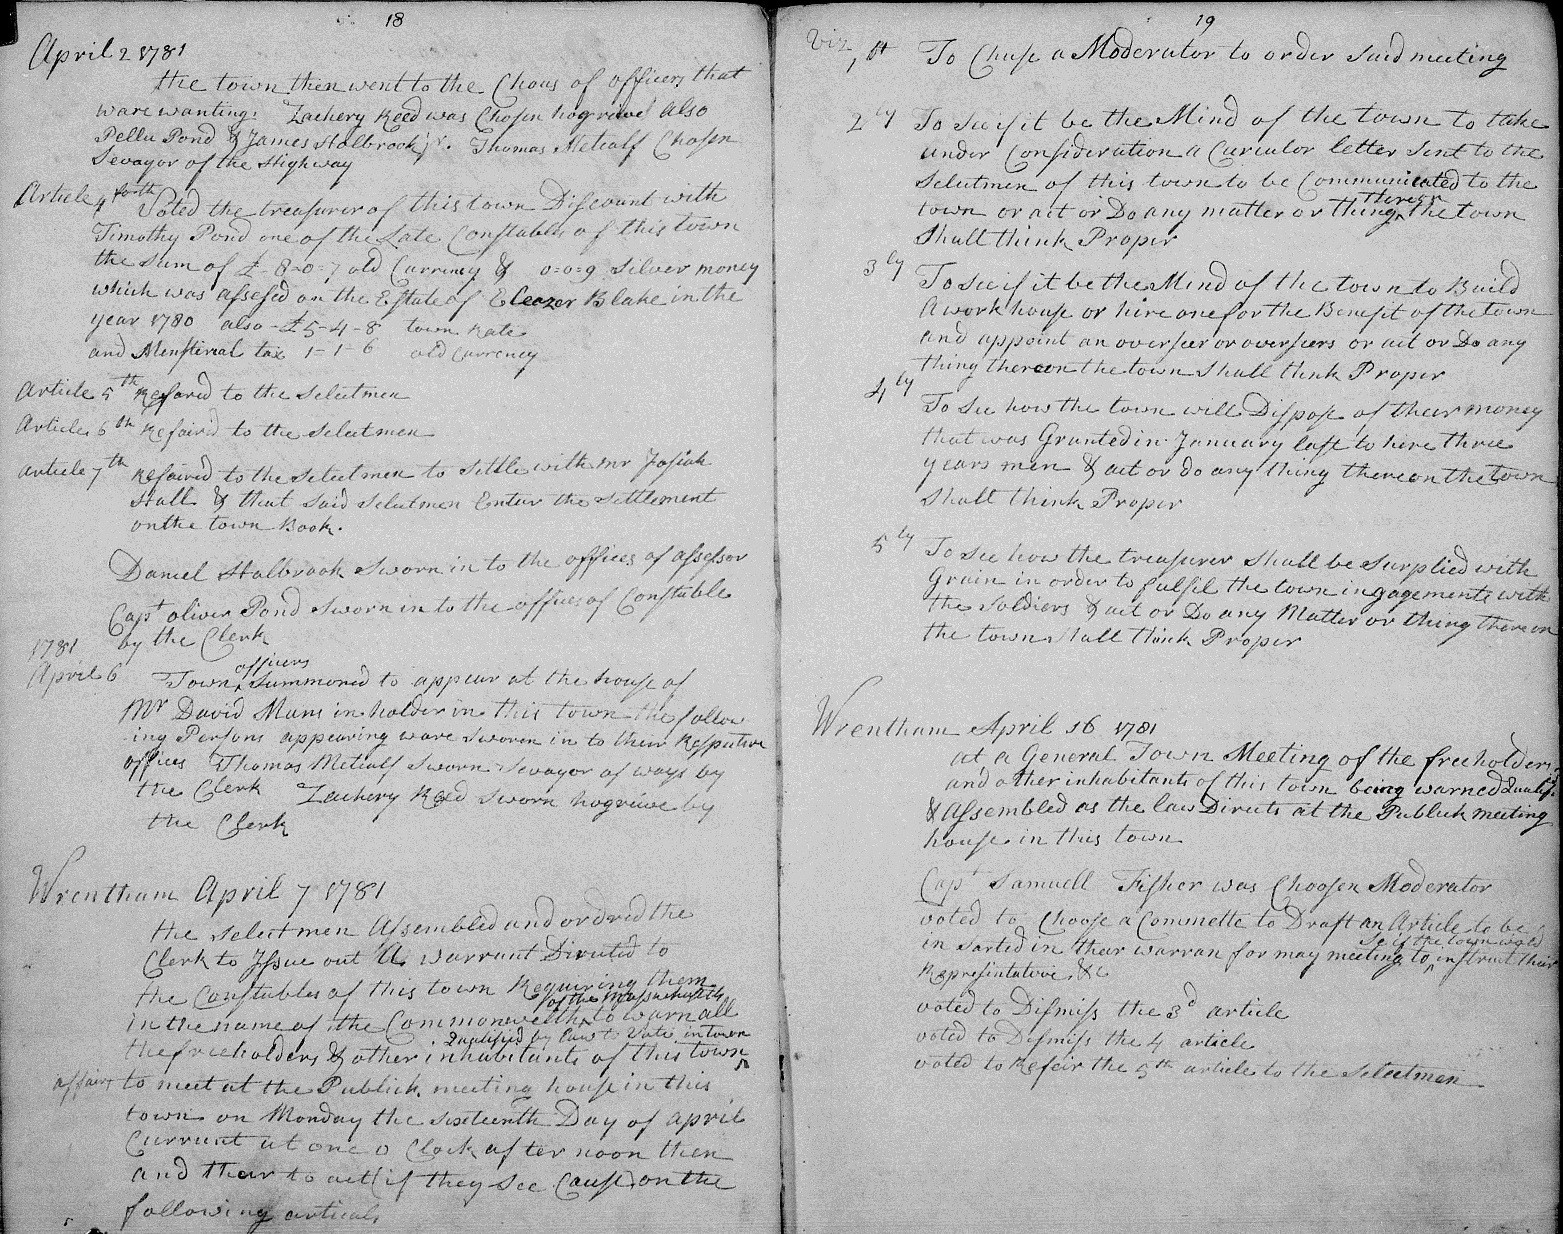 18
April 2 1781
the town then went to the Choas of officers that
ware wanting: Zachery Reed was Chosen hogreive also
Pellu Pond & James Holbrook jr. Thomas Metcalf Chosen
Sevayor of the Highway
Article 4 forth Voted the treasurer of this town Discount with
Timothy Pond one of the Late Constables of this town
the sum of £-8=0=7 old Currency & 0=0=9 silver money
which was assesed on the Estate of Eleazer Blake in the
year 1780 also - £5-4-8 town Rate
and Mensterial tax 1-1-6 old Currency
Article 5th Refared to the Selectmen
Article 6th Refaird to the Selectmen
Article 7th Refaired to the Selectmen to settle with mr Josiah
Hall & that said Selectmen Enter the settlement
on the town Book.
Daniel Halbrook sworn in to the offices of assessor
Capt oliver Pond sworn in to the offices of Constable
by the Clerk
1781
April 6 Town officers Summoned to appear at the house of
Mr David Mann in holder in this town the follow
ing Persons appearing ware sworn in to their Respective
offices Thomas Metcalf sworn Sevayor of ways by
the Clerk Zachery Reed sworn hogreive by
the Clerk
Wrentham April 7 1781
the Selectmen Assembled and ordred the
Clerk to Issue out A warrant Directed to
the Constables of this town Requiring them
in the name of the Commonwelth of the Massachusetts to warn all
the freeholders & other inhabitants of this town Qualified by law to Vote in town
affairs to meet at the Publick meeting house in this
town on Monday the sixteenth Day of april
Currant at one o Clock after noon then
and thear to act (if they see Cause) on the
following articals
19
Viz
1st To Chuse a Moderator to order said meeting
2ly To see if it be the Mind of the town to take
under Consideration a Curculor letter sent to the
Selectmen of this town to be Communicated to the
town or act or Do any matter or thing thereon the town
Shall think Proper
3ly To see if it be the Mind of the town to Build
A work house or hire one for the Benefit of the town
and appoint an overseer or overseers or act or Do any
thing thereon the town shall think Proper
4ly To see how the town will Dispose of their money
that was Granted in January last to hire three
years men & act or do any thing thereon the town
Shall think Proper
5ly To see how the treasurer shall be surplied with
Grain in order to fulfil the town ingagements with
the Soldiers & act or Do any Matter or thing there on
the town shall think Proper
Wrentham April 16 1781
at a General Town Meeting of the freeholders
and other inhabitants of this town being warned Qualifd
& Assembled as the law Directs at the Publick meeting
house in this town
Capt Samuell Fisher was Choosen Moderator
voted to Choose a Commette to Draft an Article to be
in sarted in thear warran for may meeting to see if the town would instruct their
Representative &c
voted to Dismiss the 3d article
voted to Dismiss the 4 article
voted to Refeir the 5th article to the selectmen